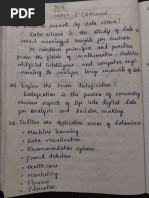 FDS
UNIT-I (2 marks)
1) What is meant by data science?
Data science is the study of data
extract meaningful insight for business
It combines principles and practices
from the fields of mathematics, statistics
artificial intelligence and computer eng-
ineering to analyze large amounts of data
2a) Define the term datafication?
Datafication is the process of converting
various aspects of life into digital data
for analysis and decision making.
3a) Outline the application areas of datascience
- Machine learning
- Data visualisation
- Recommendation systems
- Fraud detection
- Health care
- Marketing
- Finance
- Education